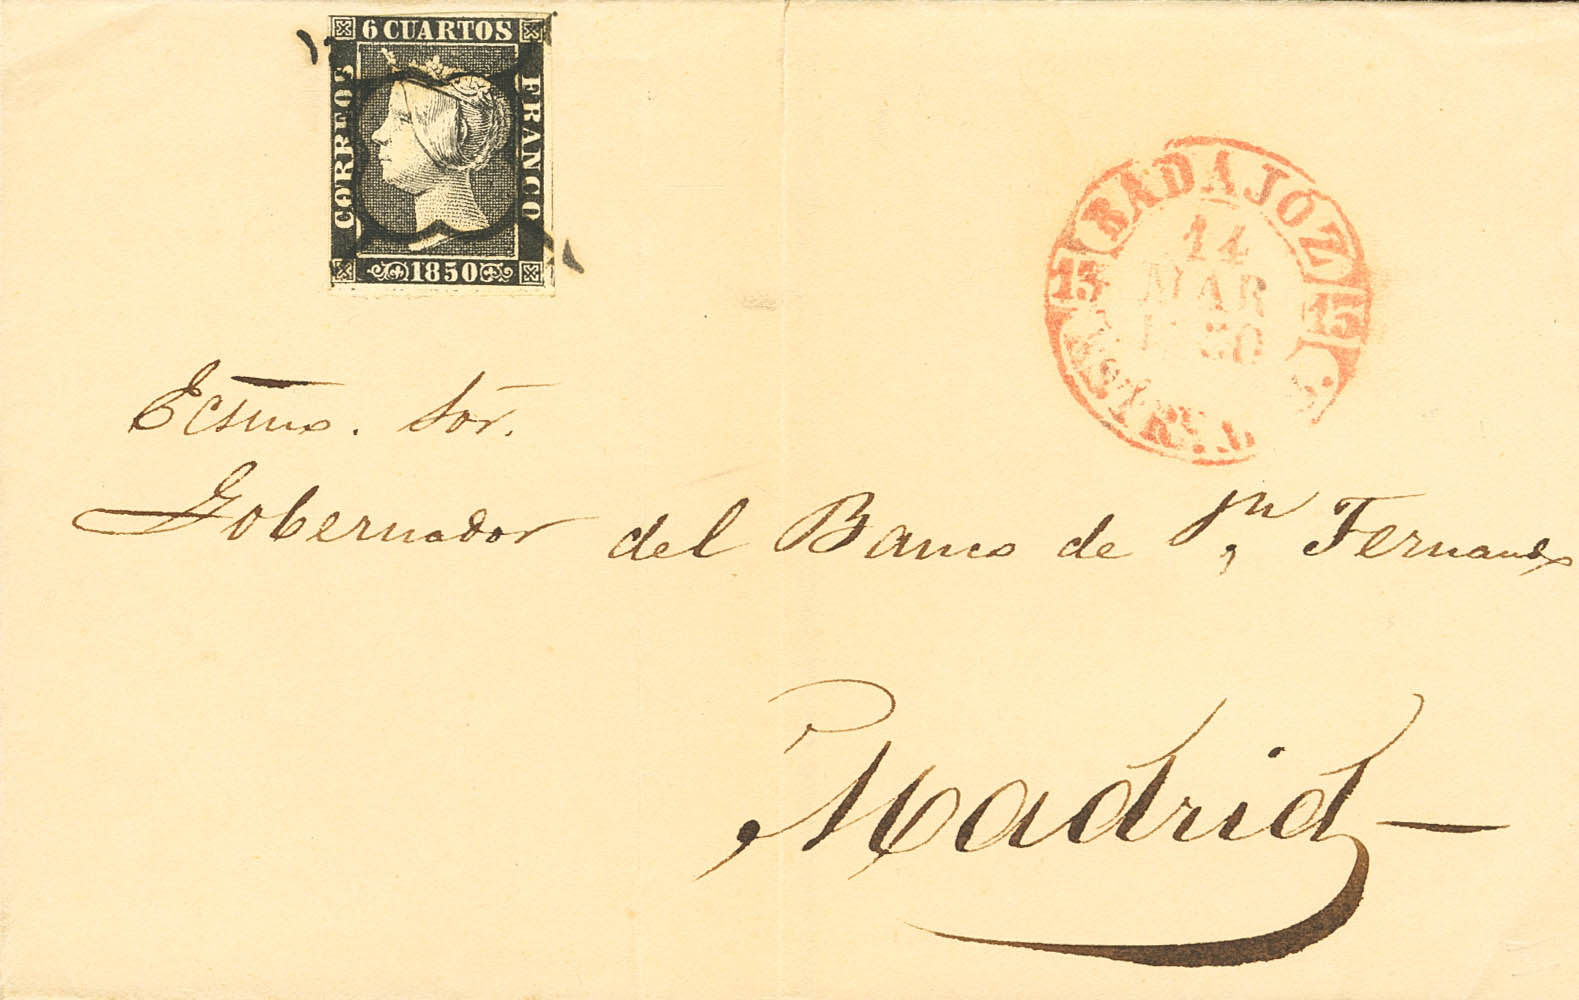 6 CUARTOS
CORREOS
FRANCO
1850
BADAJÓZ
14
MAR
1850
15
15
Ecsmo. Sor.
Gobernador del Banco de Sn Fernando
Madrid